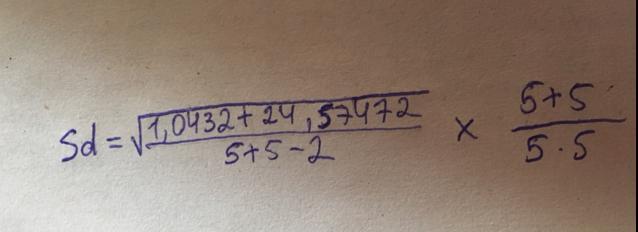 Sd = √(1,0432 + 24,57472 / 5+5-2) × 5+5 / 5·5